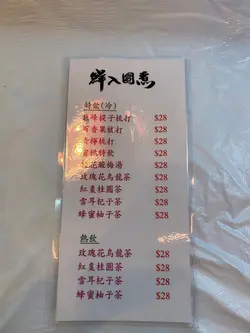 鮮入圍煮
特飲(冷)
巨峰提子梳打 $28
百香果梳打 $28
青檸梳打 $28
蜜桃特飲 $28
花酸梅湯 $28
玫瑰花烏龍茶 $28
紅棗桂圓茶 $28
雪耳杞子茶 $28
蜂蜜柚子茶 $28
熱飲
玫瑰花烏龍茶 $28
紅棗桂圓茶 $28
雪耳杞子茶 $28
蜂蜜柚子茶 $28